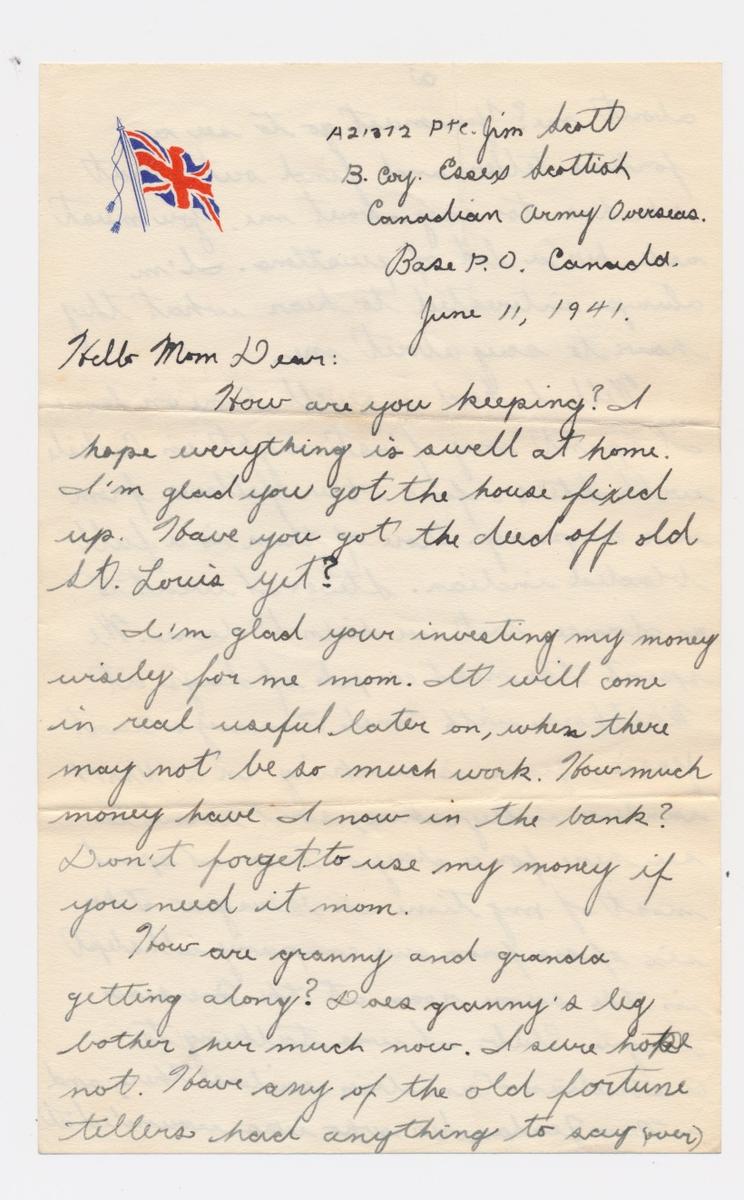 A21372 Pte. Jim Scott
B. Coy. Essex Scottish
Canadian Army Overseas.
Base P.O. Canada.
June 11, 1941.
Hello Mom Dear:
How are you keeping? I
hope everything is swell at home.
I'm glad you got the house fixed
up. Have you got the deed off old
St. Louis yet?
I'm glad your investing my money
wisely for me mom. It will come
in real useful later on, when there
may not be so much work. How much
money have I now in the bank?
Don't forget to use my money if
you need it mom.
How are granny and granda
getting along? Does granny's leg
bother her much now. I sure hope
not. Have any of the old fortune
tellers had anything to say (over)